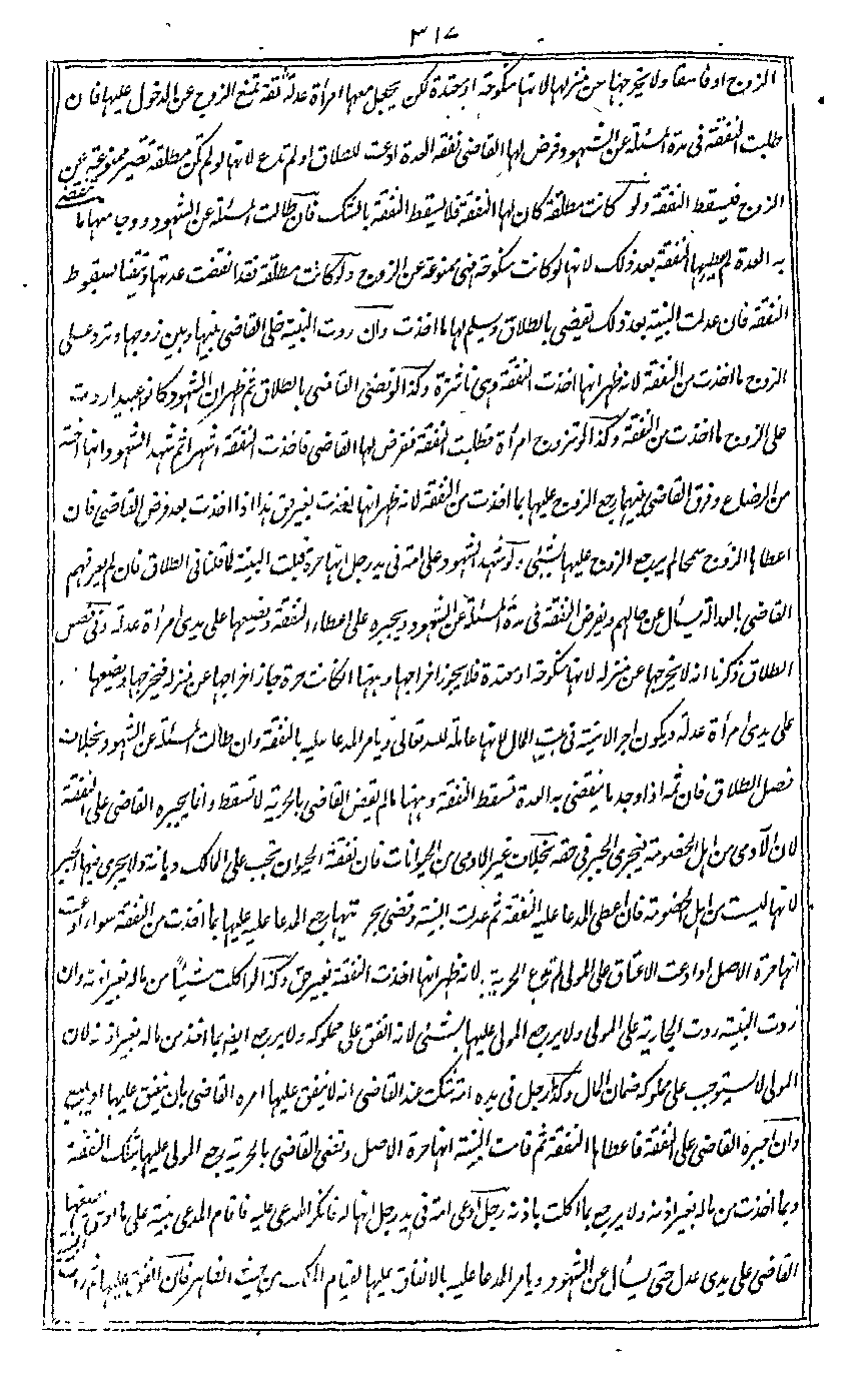 ٣١٧
الزوج او فاسقا ولا يخرجها من منزلها لانها منكوحة او معتدة لكن يجعل معها امرأة عدلة ثقة تمنع الزوج عن الدخول عليها فان
طلبت النفقة فى مدة المسئلة عن الشهود وفرض لها القاضى نفقة العدة ادعت للطلاق او لم تدع لانها لو لم تكن مطلقة تصير ممنوعة عن
الزوج فيسقط النفقة ولو كانت مطلقة كان لها النفقة فلا يسقط النفقة بالشك فان طالت المسئلة عن الشهود ووجا معها ما تنقضى
به العدة لم يعطها النفقة بعد ذلك لانها لو كانت منكوحة فهى ممنوعة عن الزوج ولو كانت مطلقة فقد انقضت عدتها وتيقنا لسقوط
النفقة فان عدلت البينة بعد ذلك يقضى بالطلاق وسلم لها ما اخذت وان ردت البينة خلى القاضى بينها وبين زوجها وترد على
الزوج ما اخذت من النفقة لانه ظهر انها اخذت النفقة وهى ناشزة وكذا لو قضى القاضى بالطلاق ثم ظهر ان الشهود كانوا عبيدا ردت
على الزوج ما اخذت من النفقة وكذا لو تزوج امرأة فطلبت النفقة ففرض لها القاضى فاخذت النفقة اشهرا ثم شهد الشهود انها اخته
من الرضاع وفرق القاضى بينهما رجع الزوج عليها بما اخذت من النفقة لانه ظهر انها اخذت بغير حق هذا اذا اخذت بعد فرض القاضى فان
اعطاها الزوج سمحا لم يرجع الزوج عليها بشئى ولو شهد الشهود على امة فى يد رجل انها حرة قبلت البينة لما قلنا فى الطلاق فان لم يعرفهم
القاضى بالعدالة يسأل عن حالهم ويفرض النفقة فى مدة المسئلة عن الشهود ويجبره على اعطاء النفقة ويضعها على يدى امرأة عدلة وفى فصل
الطلاق ذكرنا انه لا يخرجها عن منزله لانها منكوحة او معتدة فلا يجوز اخراجها وههنا ان كانت حرة جاز اخراجها عن منزله فيخرجها ويضعها
على يدى امرأة عدلة ويكون اجر الامينة فى بيت المال لانها عاملة لله تعالى ويامر المدعا عليه بالنفقة وان طالت المسئلة عن الشهود بخلاف
فصل الطلاق فان ثمه اذا وجد ما ينقضى به العدة تسقط النفقة وههنا ما لم يقض القاضى بالحرية لا تسقط وانما يجبره القاضى على النفقة
لان الآدمى من اهل الخصومة فيجرى الجبر فى حقه بخلاف غير الادمى من الحيوانات فان نفقة الحيوان يجب على المالك ديانة ولا يجرى فيها الجبر
لانها ليست من اهل الخصومة فان اعطى المدعا عليه النفقة ثم عدلت البينة وقضى بحريتها رجع المدعا عليه عليها بما اخذت من النفقة سواء ادعت
انها حرة الاصل او ادعت الاعتاق على المولى لم تدع الحرية لانه ظهر انها اخذت النفقة بغير حق وكذا لو اكلت شيئا من ماله بغير اذنه وان
ردت البينة ردت الجارية على المولى ولا يرجع المولى عليها بشئى لانه انفق على مملوكه ولا يرجع ايضا بما اخذ من ماله بغير اذنه لان
المولى لا يستوجب على مملوكه ضمان المال وكذا رجل فى يده امة شكت عند القاضى انه لا ينفق عليها امره القاضى بان ينفق عليها او يبيع
وان اجبره القاضى على النفقة فاعطاها النفقة ثم قامت البينة انها حرة الاصل وقضى القاضى بالحرية يرجع المولى عليها بتلك النفقة
وبما اخذت من ماله بغير اذنه ولا يرجع بما اكلت باذنه رجل ادعى امة فى يد رجل انها له فانكر المدعى عليه فاقام المدعى بينة على ما ادعى يضعها
القاضى على يدى عدل حتى يسأل عن الشهود ويامر المدعا عليه بالانفاق عليها لقيام الملك من حيث الظاهر فان انفق عليها ثم ردت البينة